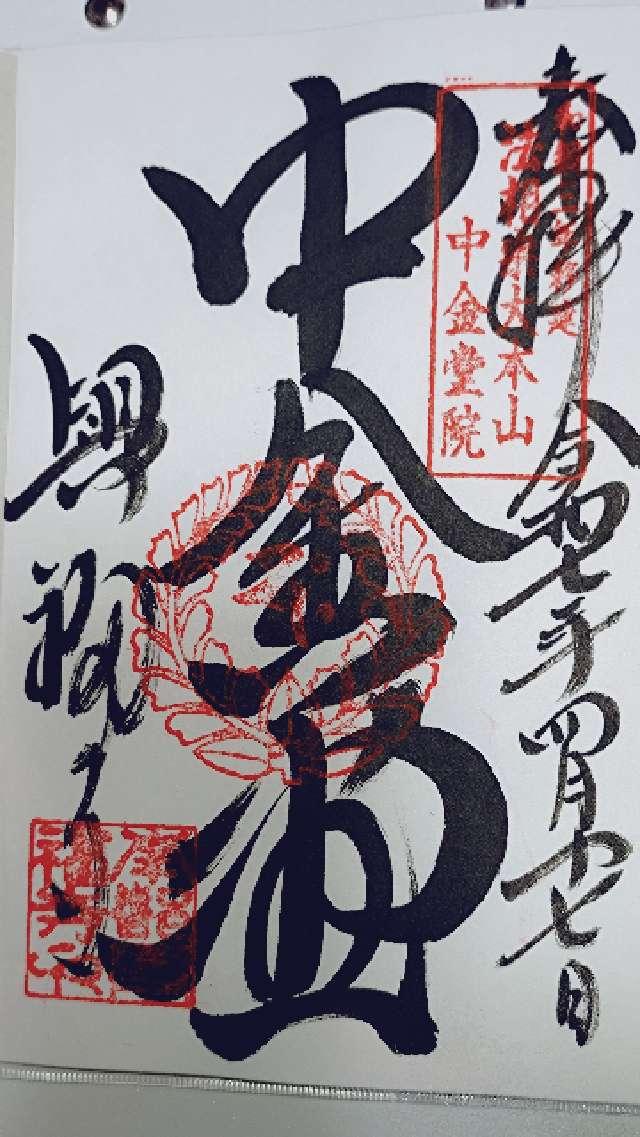 奉拝
令和七年四月十七日
法相宗大本山
中金堂院
中金堂
興福寺